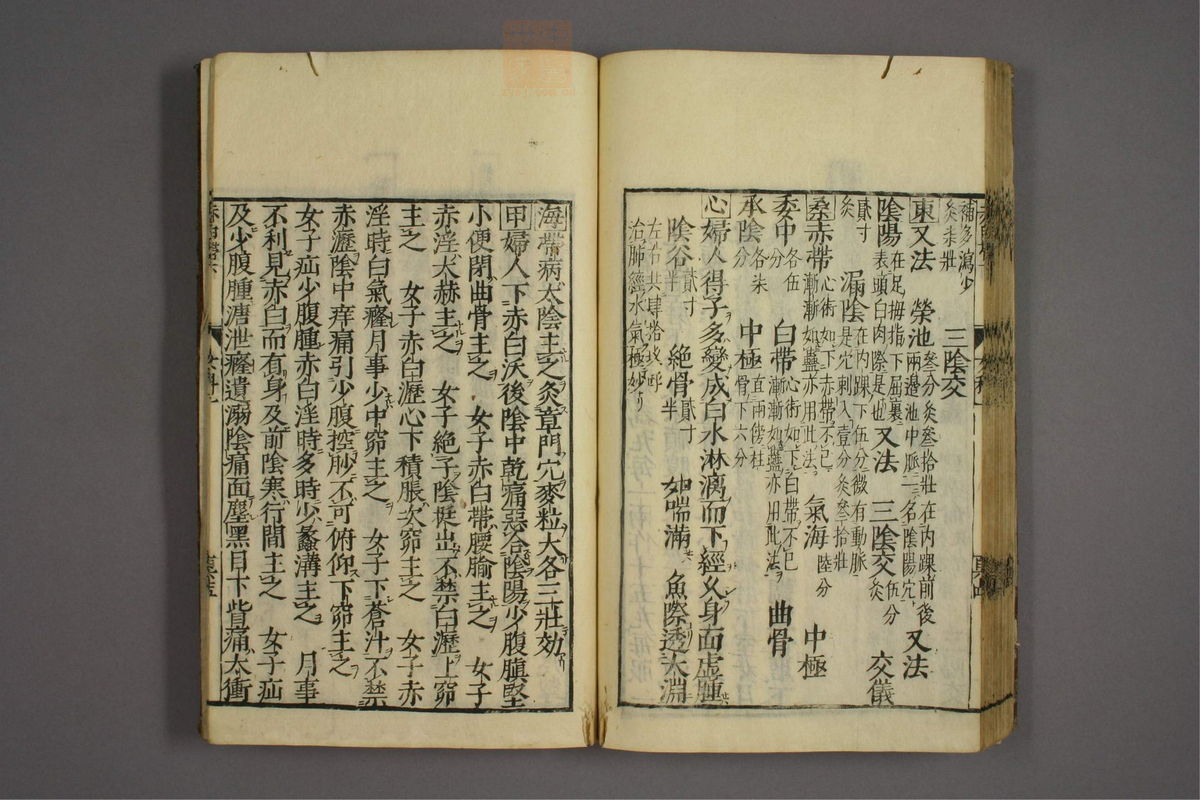 補多瀉少
灸柒壯　三陰交
東又法　榮池參分灸參拾壯在內踝前後兩邊池中脈一名陰陽穴又法
陰陽在足拇指下屈裏表頭白肉際是也又法　三陰交伍分灸　交儀
貳寸灸　漏陰在內踝下伍分微有動脈是穴刺入壹分灸參拾壯
桑赤帶心術如下赤帶不已漸漸如蠱亦用此法　氣海陸分　中極
委中各伍分　白帶心術如下白帶不已漸漸如蠱亦用此法　曲骨
承陰各柒分　中極直兩傍柱骨下六分
心婦人得子多變成白水淋漓而下經久身面虛腫
陰谷貳寸半　絶骨貳寸半　如喘滿　魚際透太淵
左右共肆拾
治肺水氣極妙
海帶病太陰主之灸章門穴麥粒大各三壯効
甲婦人下赤白沃後陰中乾痛惡合陰陽少腹䐜堅
小便閉曲骨主之　女子赤白帶腰腧主之　女子
赤淫大赫主之　女子絶子陰挺出不禁白瀝上窌
主之　女子赤白瀝心下積脹次窌主之　女子赤
淫時白氣癃月事少中窌主之　女子下蒼汁不禁
赤瀝陰中痒痛引少腹控䏚不可俯仰下窌主之
女子疝少腹腫赤白淫時多時少蠡溝主之　月事
不利見赤白而有身及前陰寒行間主之　女子疝
及少腹腫溏泄癃遺溺陰痛面塵黑目下眥痛太衝